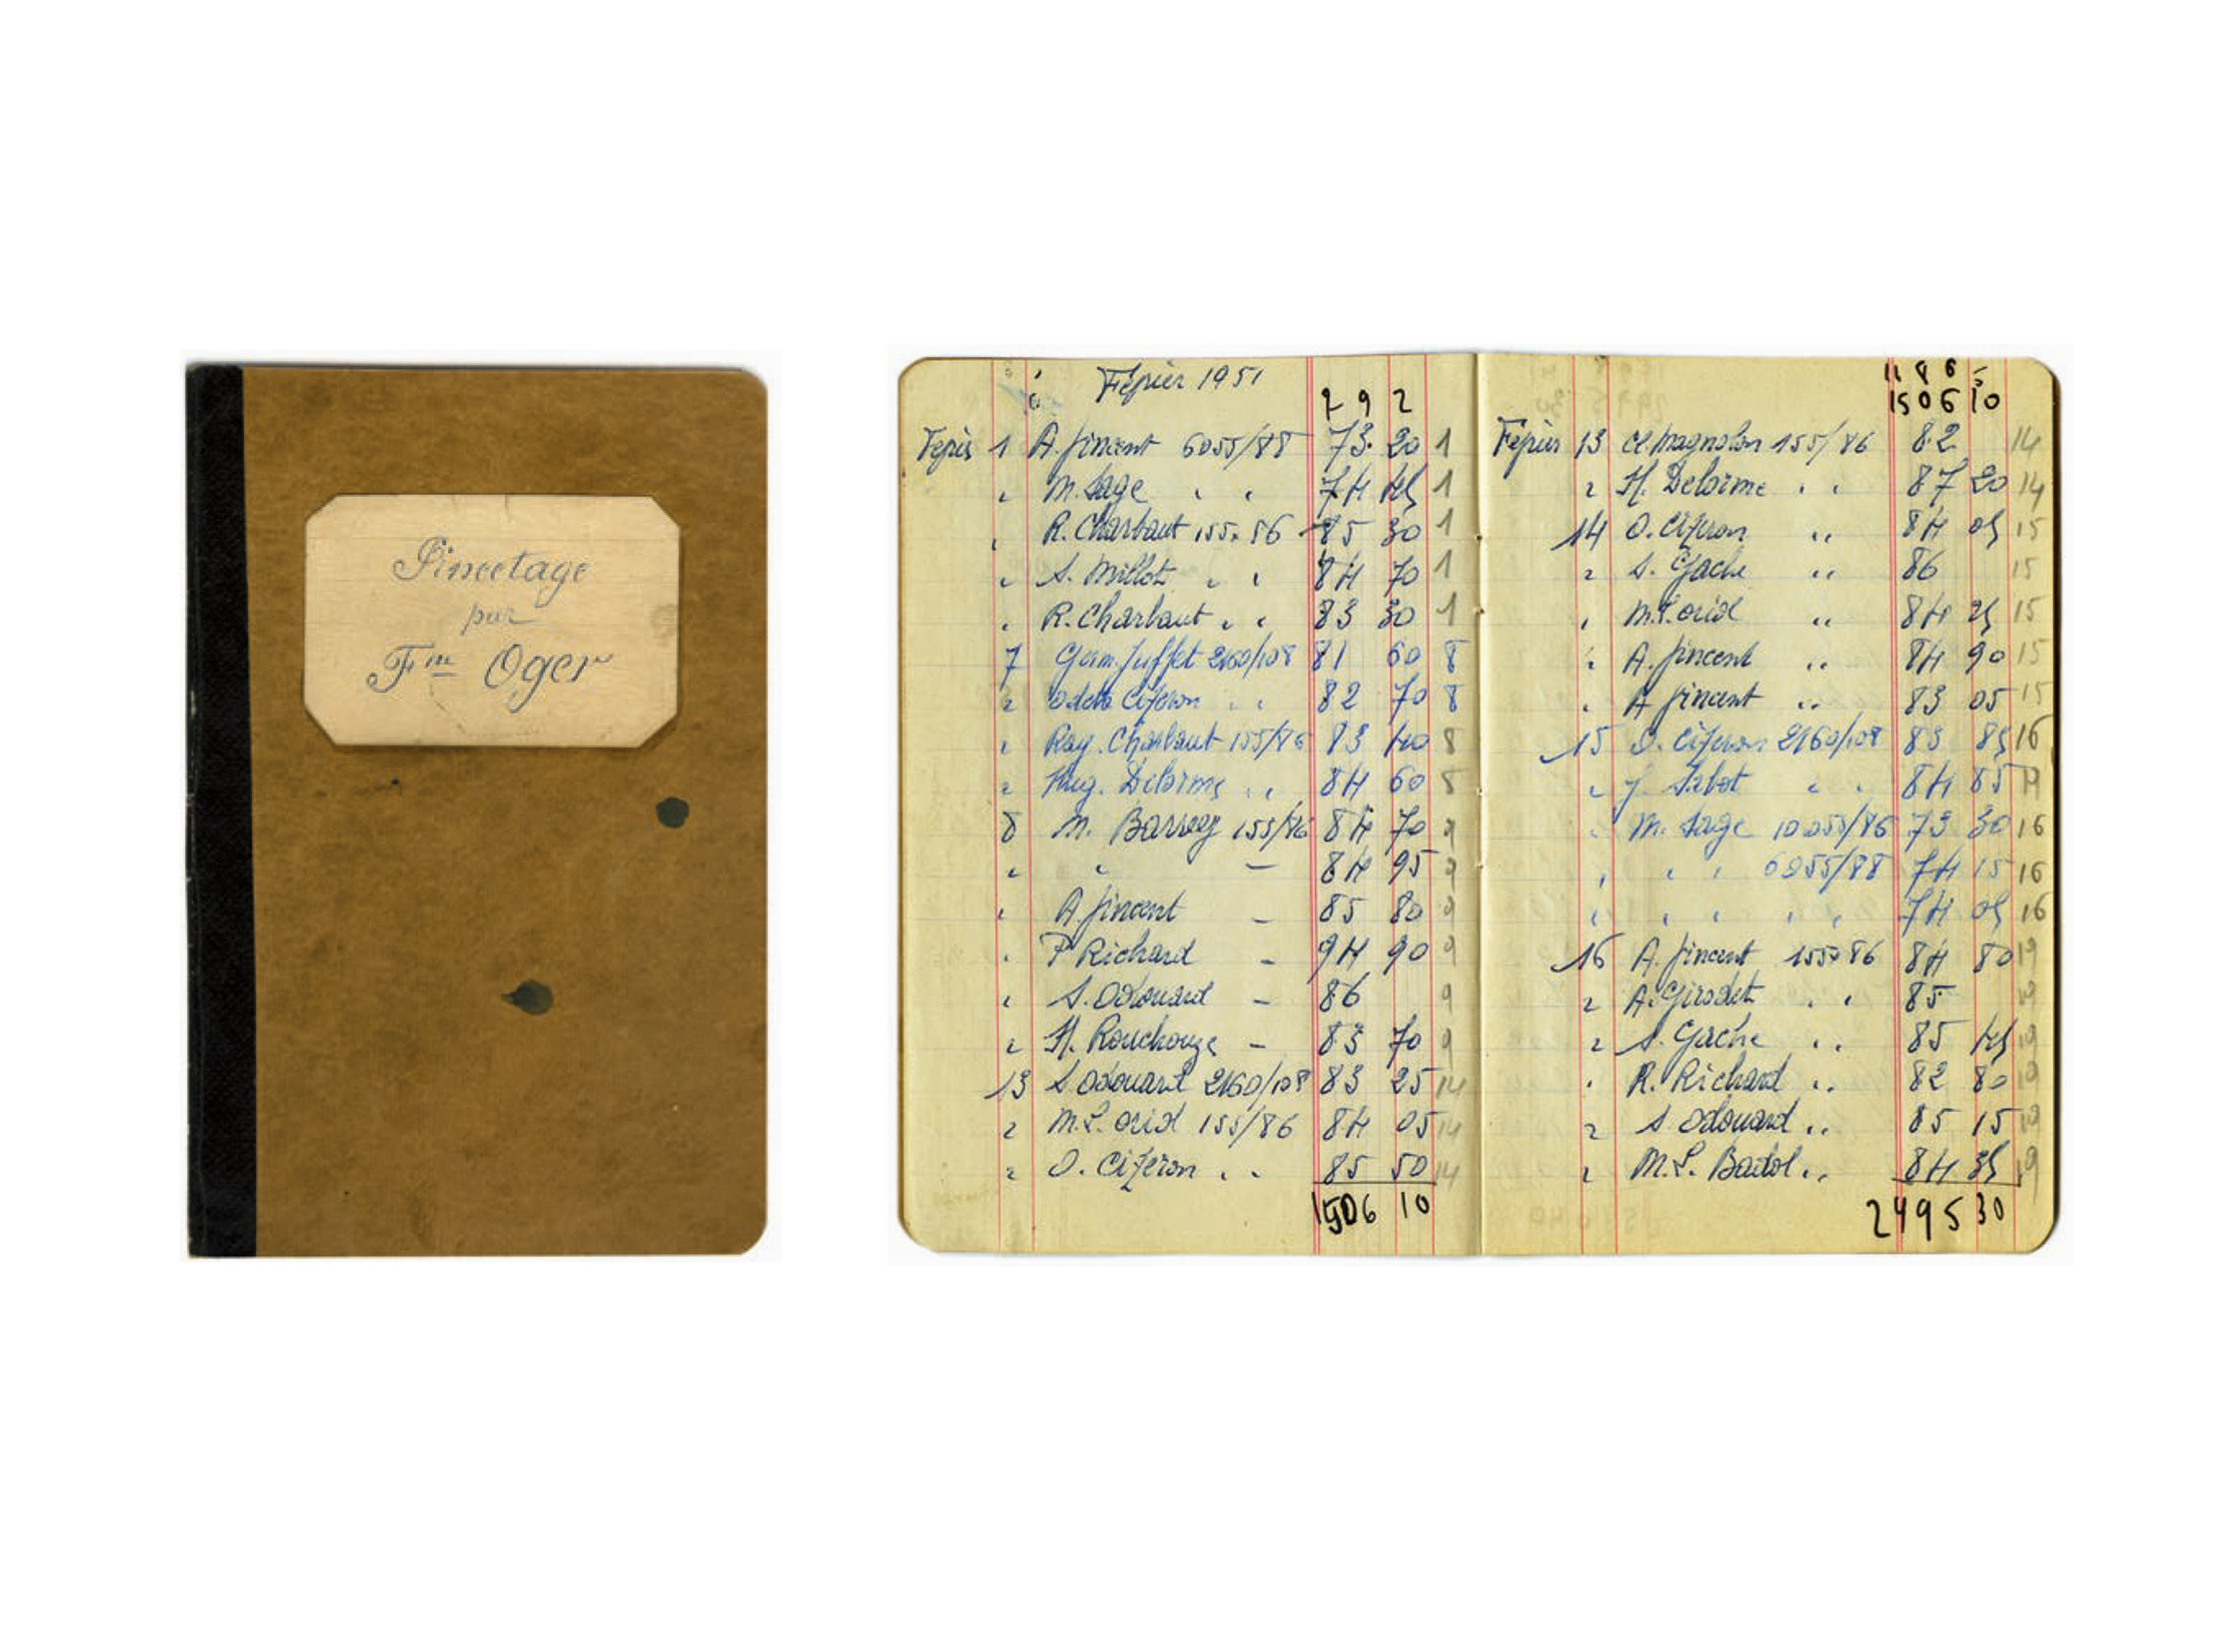 Pincetage
par
Fm Oger
Février 1951
7 9 2
Février 1 A. Vincent 6055/88 73. 20 1
" M. Sage " " 74 45 1
" R. Charbaut 155. 86 85 30 1
" S. Millot " " 84 70 1
" R. Charbaut " " 83 30 1
7 Germ. Juffet 2160/108 81 60 8
" Odette Cizeron " " 82 70 8
" Ray. Charbaut 155/86 83 40 8
" Hug. Delorme " " 84 60 8
8 M. Barrey 155/86 84 70 9
" " – 84 95 9
" A. Vincent – 85 80 9
" P Richard – 94 90 9
" S. Odouard – 86 9
" H. Rouchouze – 83 70 9
13 S. Odouard 2160/108 83 25 14
" M.L. oriol 155/86 84 05 14
" O. Cizeron " " 85 50 14
1506 10
11 8 6 5
1506 10
Février 13 Cl. Magnolon 155/86 82 14
" H. Delorme " " 87 20 14
14 O. Cizeron " 84 05 15
" S. Gache " 86 15
" M.L. oriol " 84 25 15
" A. Vincent " 84 90 15
" A Vincent " 83 05 15
15 O. Cizeron 2160/108 83 85 16
" J. Sabot " " 84 85
" M. Sage 10055/86 73 30 16
" " " 6055/88 74 15 16
" " " " " 74 05 16
16 A. Vincent 155 86 84 80 19
" A. Girodet " " 85 19
" S. Gache " " 85 45 19
" R. Richard " " 82 80 19
" S. Odouard " " 85 15 19
" M.L. Badol " " 84 35 19
2495 30